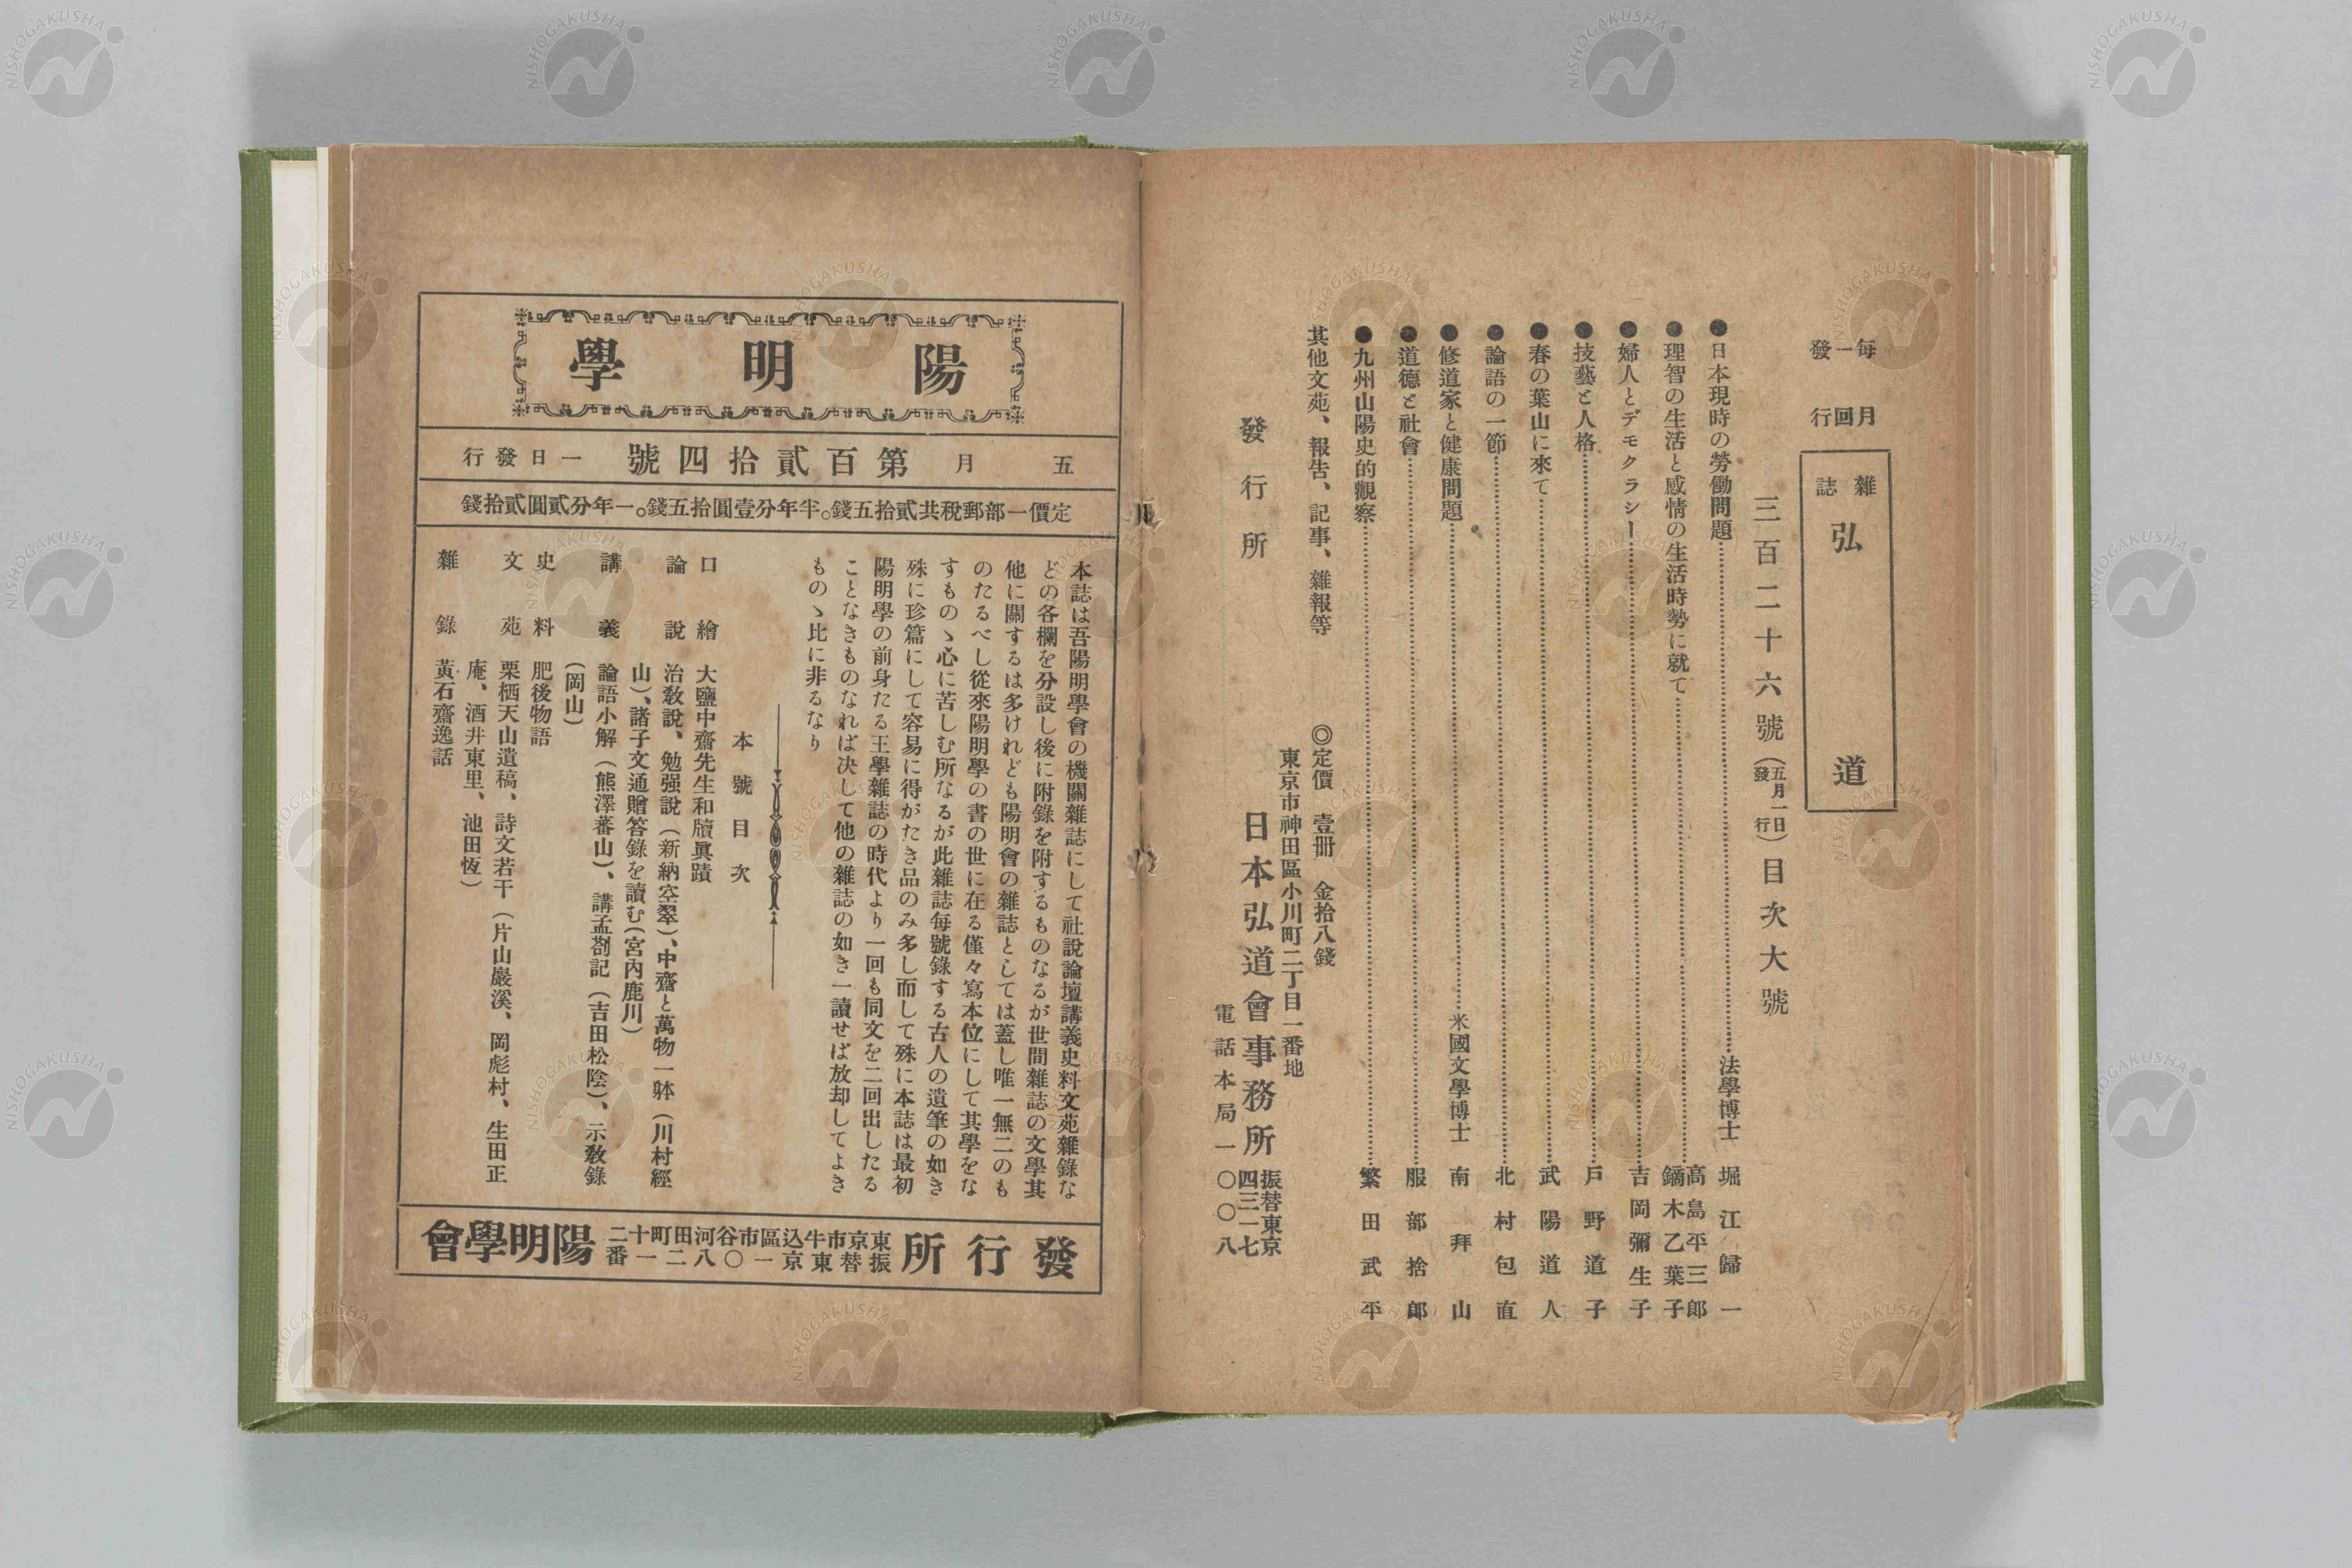 每月一回發行
雜誌 弘道
三百二十六號（五月一日發行）目次大號
●日本現時の勞働問題……法學博士 堀江歸一
●理智の生活と感情の生活時勢に就て……高島平三郎 鏑木乙葉子
●婦人とデモクラシー……吉岡彌生子
●技藝と人格……戸野道子
●春の葉山に來て……武陽道人
●論語の一節……北村包直
●修道家と健康問題……米國文學博士 南拜山
●道德と社會……服部捨郎
●九州山陽史的觀察……繁田武平
其他文苑、報告、記事、雜報等
◎定價 壹冊 金拾八錢
東京市神田區小川町二丁目一番地
發行所 日本弘道會事務所
振替東京四三一七
電話本局一〇〇八
陽明學
五月 第百貳拾四號 一日發行
定價一部郵稅共貳拾五錢。半年分壹圓拾五錢。一年分貳圓貳拾錢
本誌は吾陽明學會の機關雜誌にして社說論壇講義史料文苑雜錄な
どの各欄を分設し後に附錄を附するものなるが世間雜誌の文學其
他に關するは多けれども陽明會の雜誌としては蓋し唯一無二のも
のたるべし從來陽明學の書の世に在る僅々寫本位にして其學をな
すものゝ心に苦しむ所なるが此雜誌每號錄する古人の遺筆の如き
殊に珍篇にして容易に得がたき品のみ多し而して殊に本誌は最初
陽明學の前身たる王學雜誌の時代より一回も同文を二回出したる
ことなきものなれば決して他の雜誌の如き一讀せば放却してよき
ものゝ比に非るなり
本號目次
口繪 大鹽中齋先生和牘眞蹟
論說 治教說、勉强說（新納空翠）、中齋と萬物一躰（川村經
山）、諸子文通贈答錄を讀む（宮內鹿川）
講義 論語小解（熊澤蕃山）、講孟劄記（吉田松陰）、示教錄
（岡山）
史料 肥後物語
文苑 栗栖天山遺稿、詩文若干（片山巖溪、岡彪村、生田正
庵、酒井東里、池田恆）
雜錄 黃石齋逸話
發行所 東京市牛込區市谷河田町十二 振替東京一〇八二一番 陽明學會
NISHOGAKUSHA